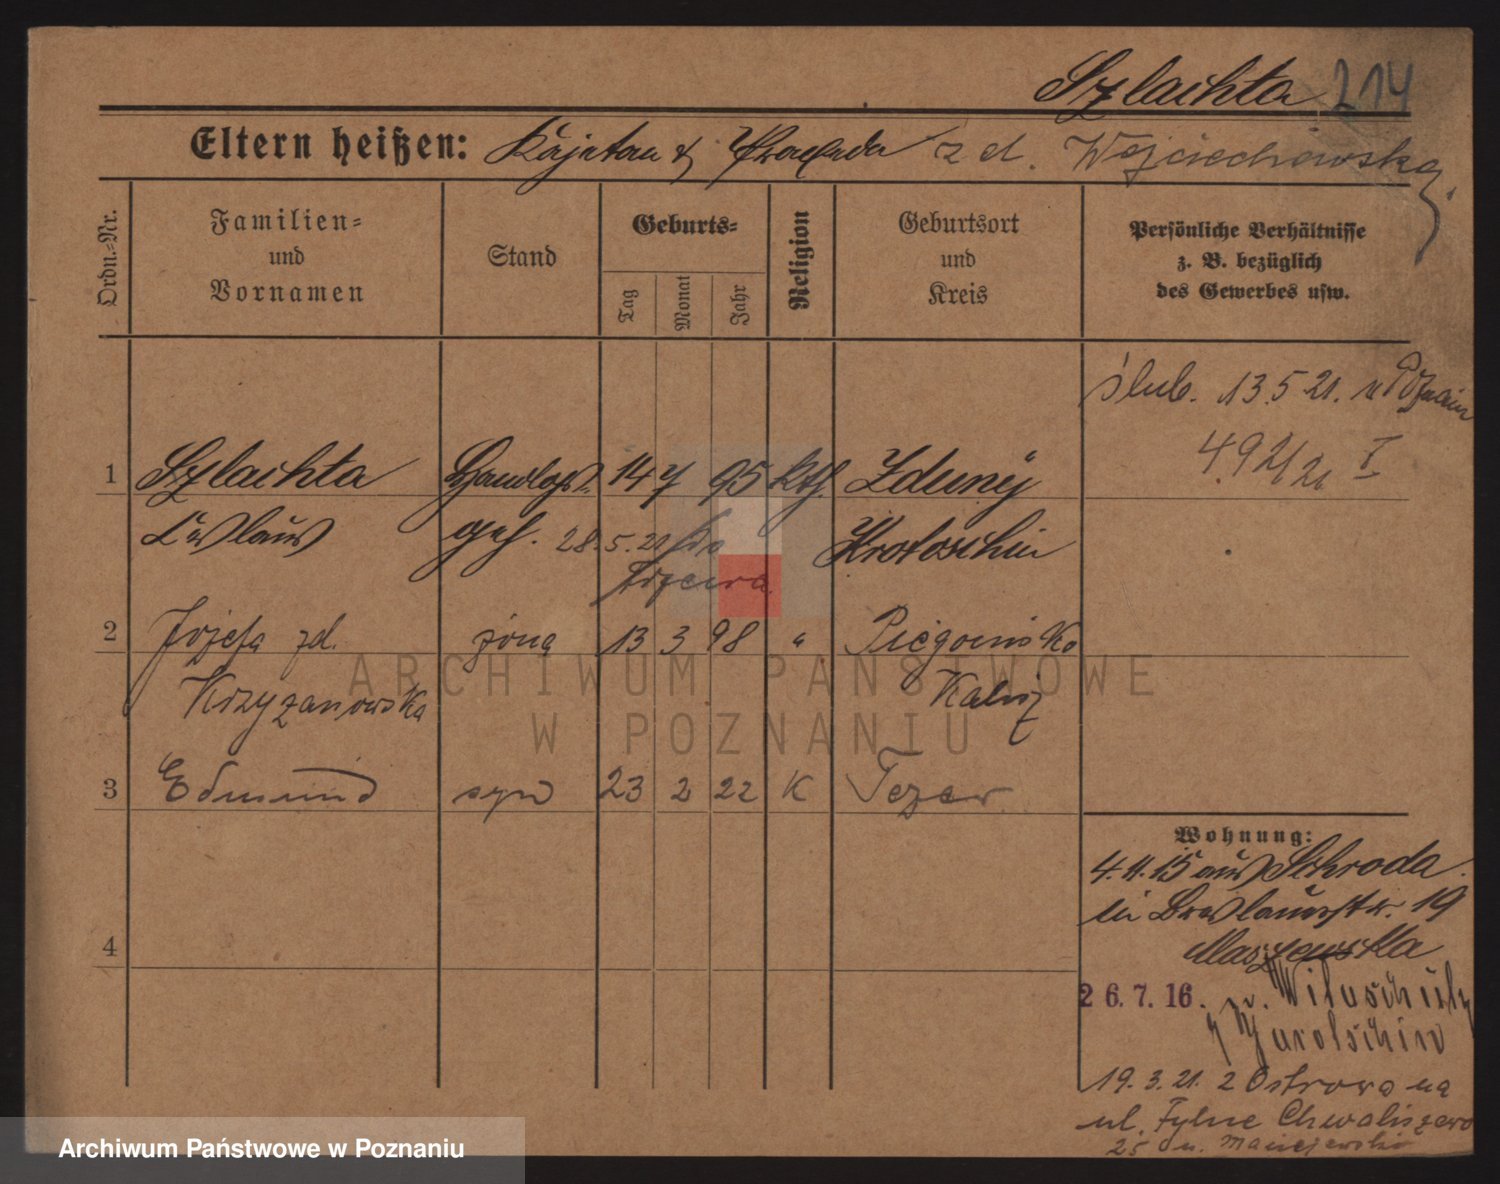 Szlachta 214
Eltern heißen: Kajetan & Praxeda z d. Wojciechowska
Ordn.-Nr.
Familien-
und
Vornamen
Stand
Geburts-
Tag
Monat
Jahr
Religion
Geburtsort
und
Kreis
Persönliche Verhältnisse
z. B. bezüglich
des Gewerbes usw.
ślub. 13.5 21. u Poznain
492/21 I
1 Szlachta 14 7 95 kth. Zduny
geh. 28.5.21 do Krotoschin
Tczewa
2 Józefa zd. żona 13 3 98 " Piegonisko
Krzyżanowska Kalisz
3 Edmund syn 23 2 22 K Tczew
4
Wohnung:
4.11.15 aus Schroda
in Breslauerstr. 19
Maszewska
26.7.16. n.
Jarotschin
19.3.21. z Ostrowa na
ul. Tylne Chwaliszewo
25 u. Maciejewski
ARCHIWUM PAŃSTWOWE
W POZNANIU
Archiwum Państwowe w Poznaniu